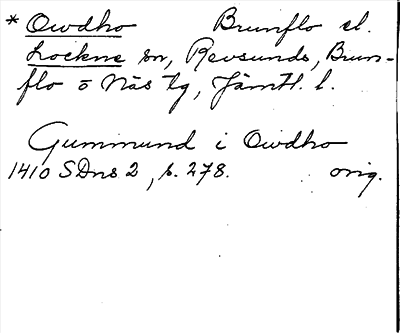 * Owdho Brunflo el.
Lockne sn, Revsunds, Brun-
flo o Näs tg, Jämtl. l.
Gummund i Owdho
1410 SDns 2, s. 278. orig.